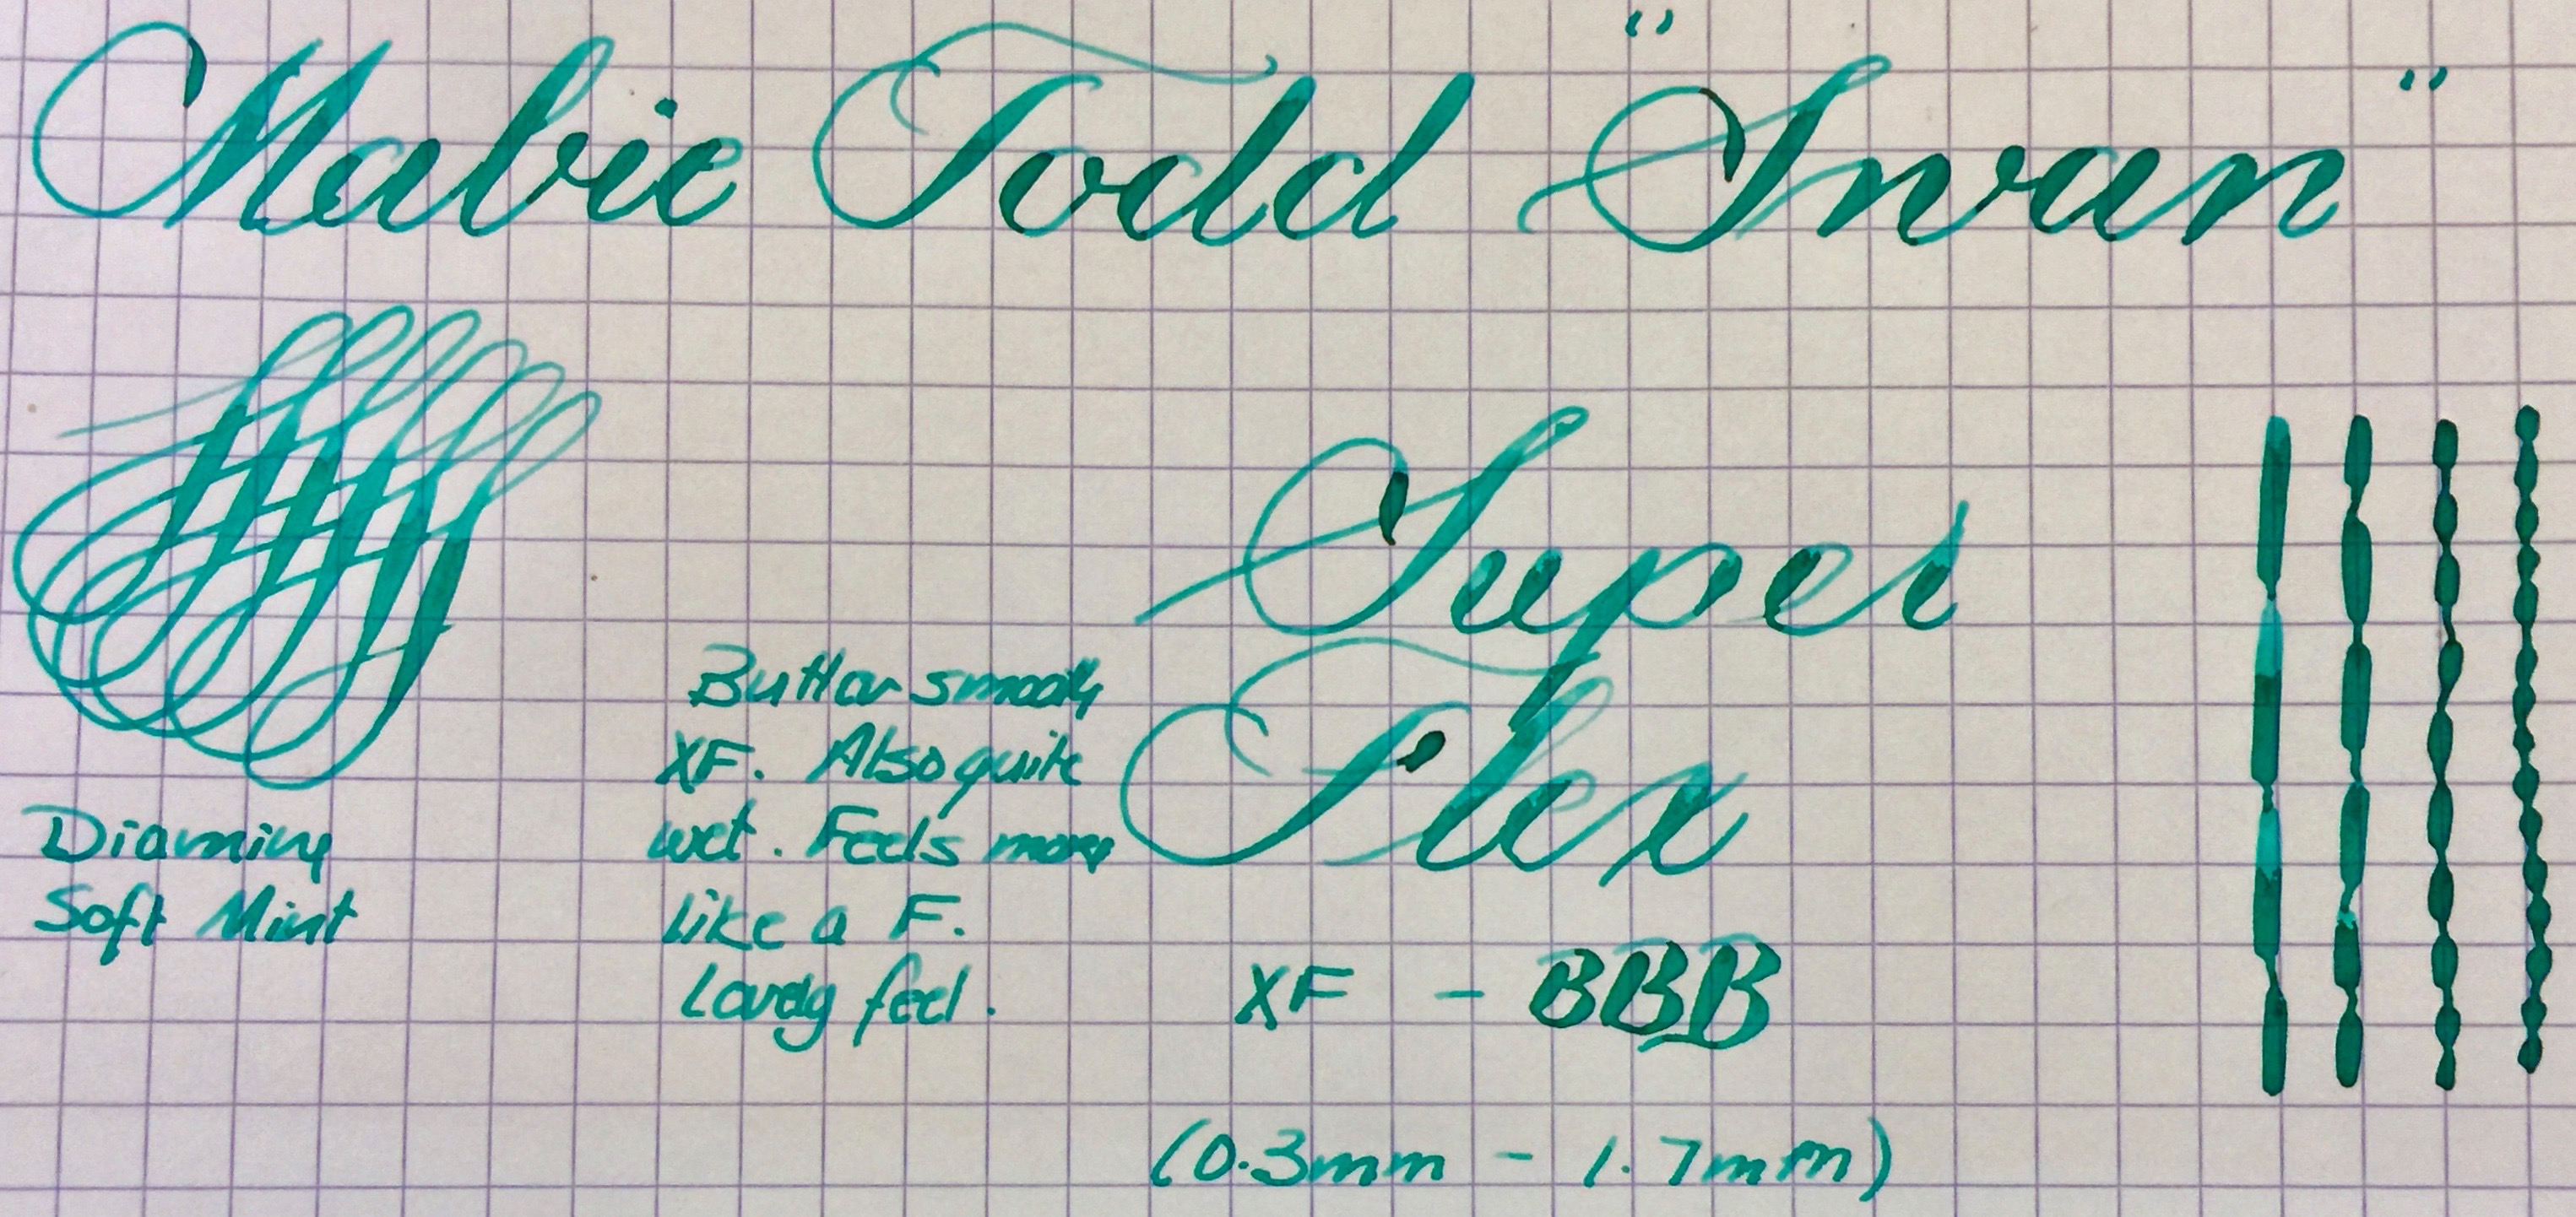 Mabie Todd "Swan"
Super
Flex
Butter smooth
XF. Also quite
wet. Feels more
like a F.
Lovely feel.
Diamine
Soft Mint
XF - BBB
(0.3mm - 1.7mm)